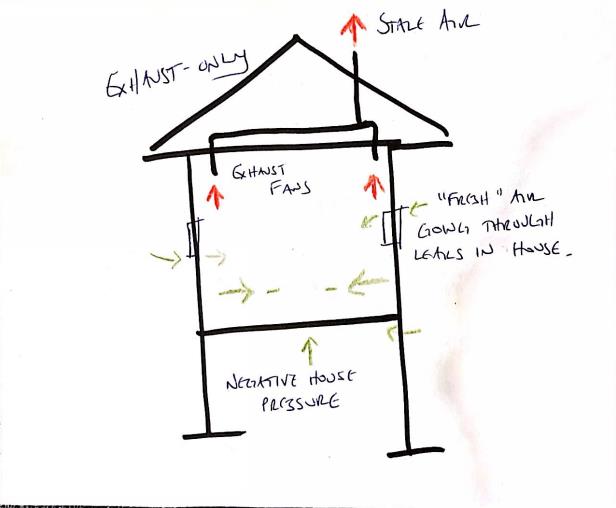 STALE AIR
EXHAUST-ONLY
EXHAUST
FANS
"FRESH" AIR
GOING THROUGH
LEAKS IN HOUSE.
NEGATIVE HOUSE
PRESSURE